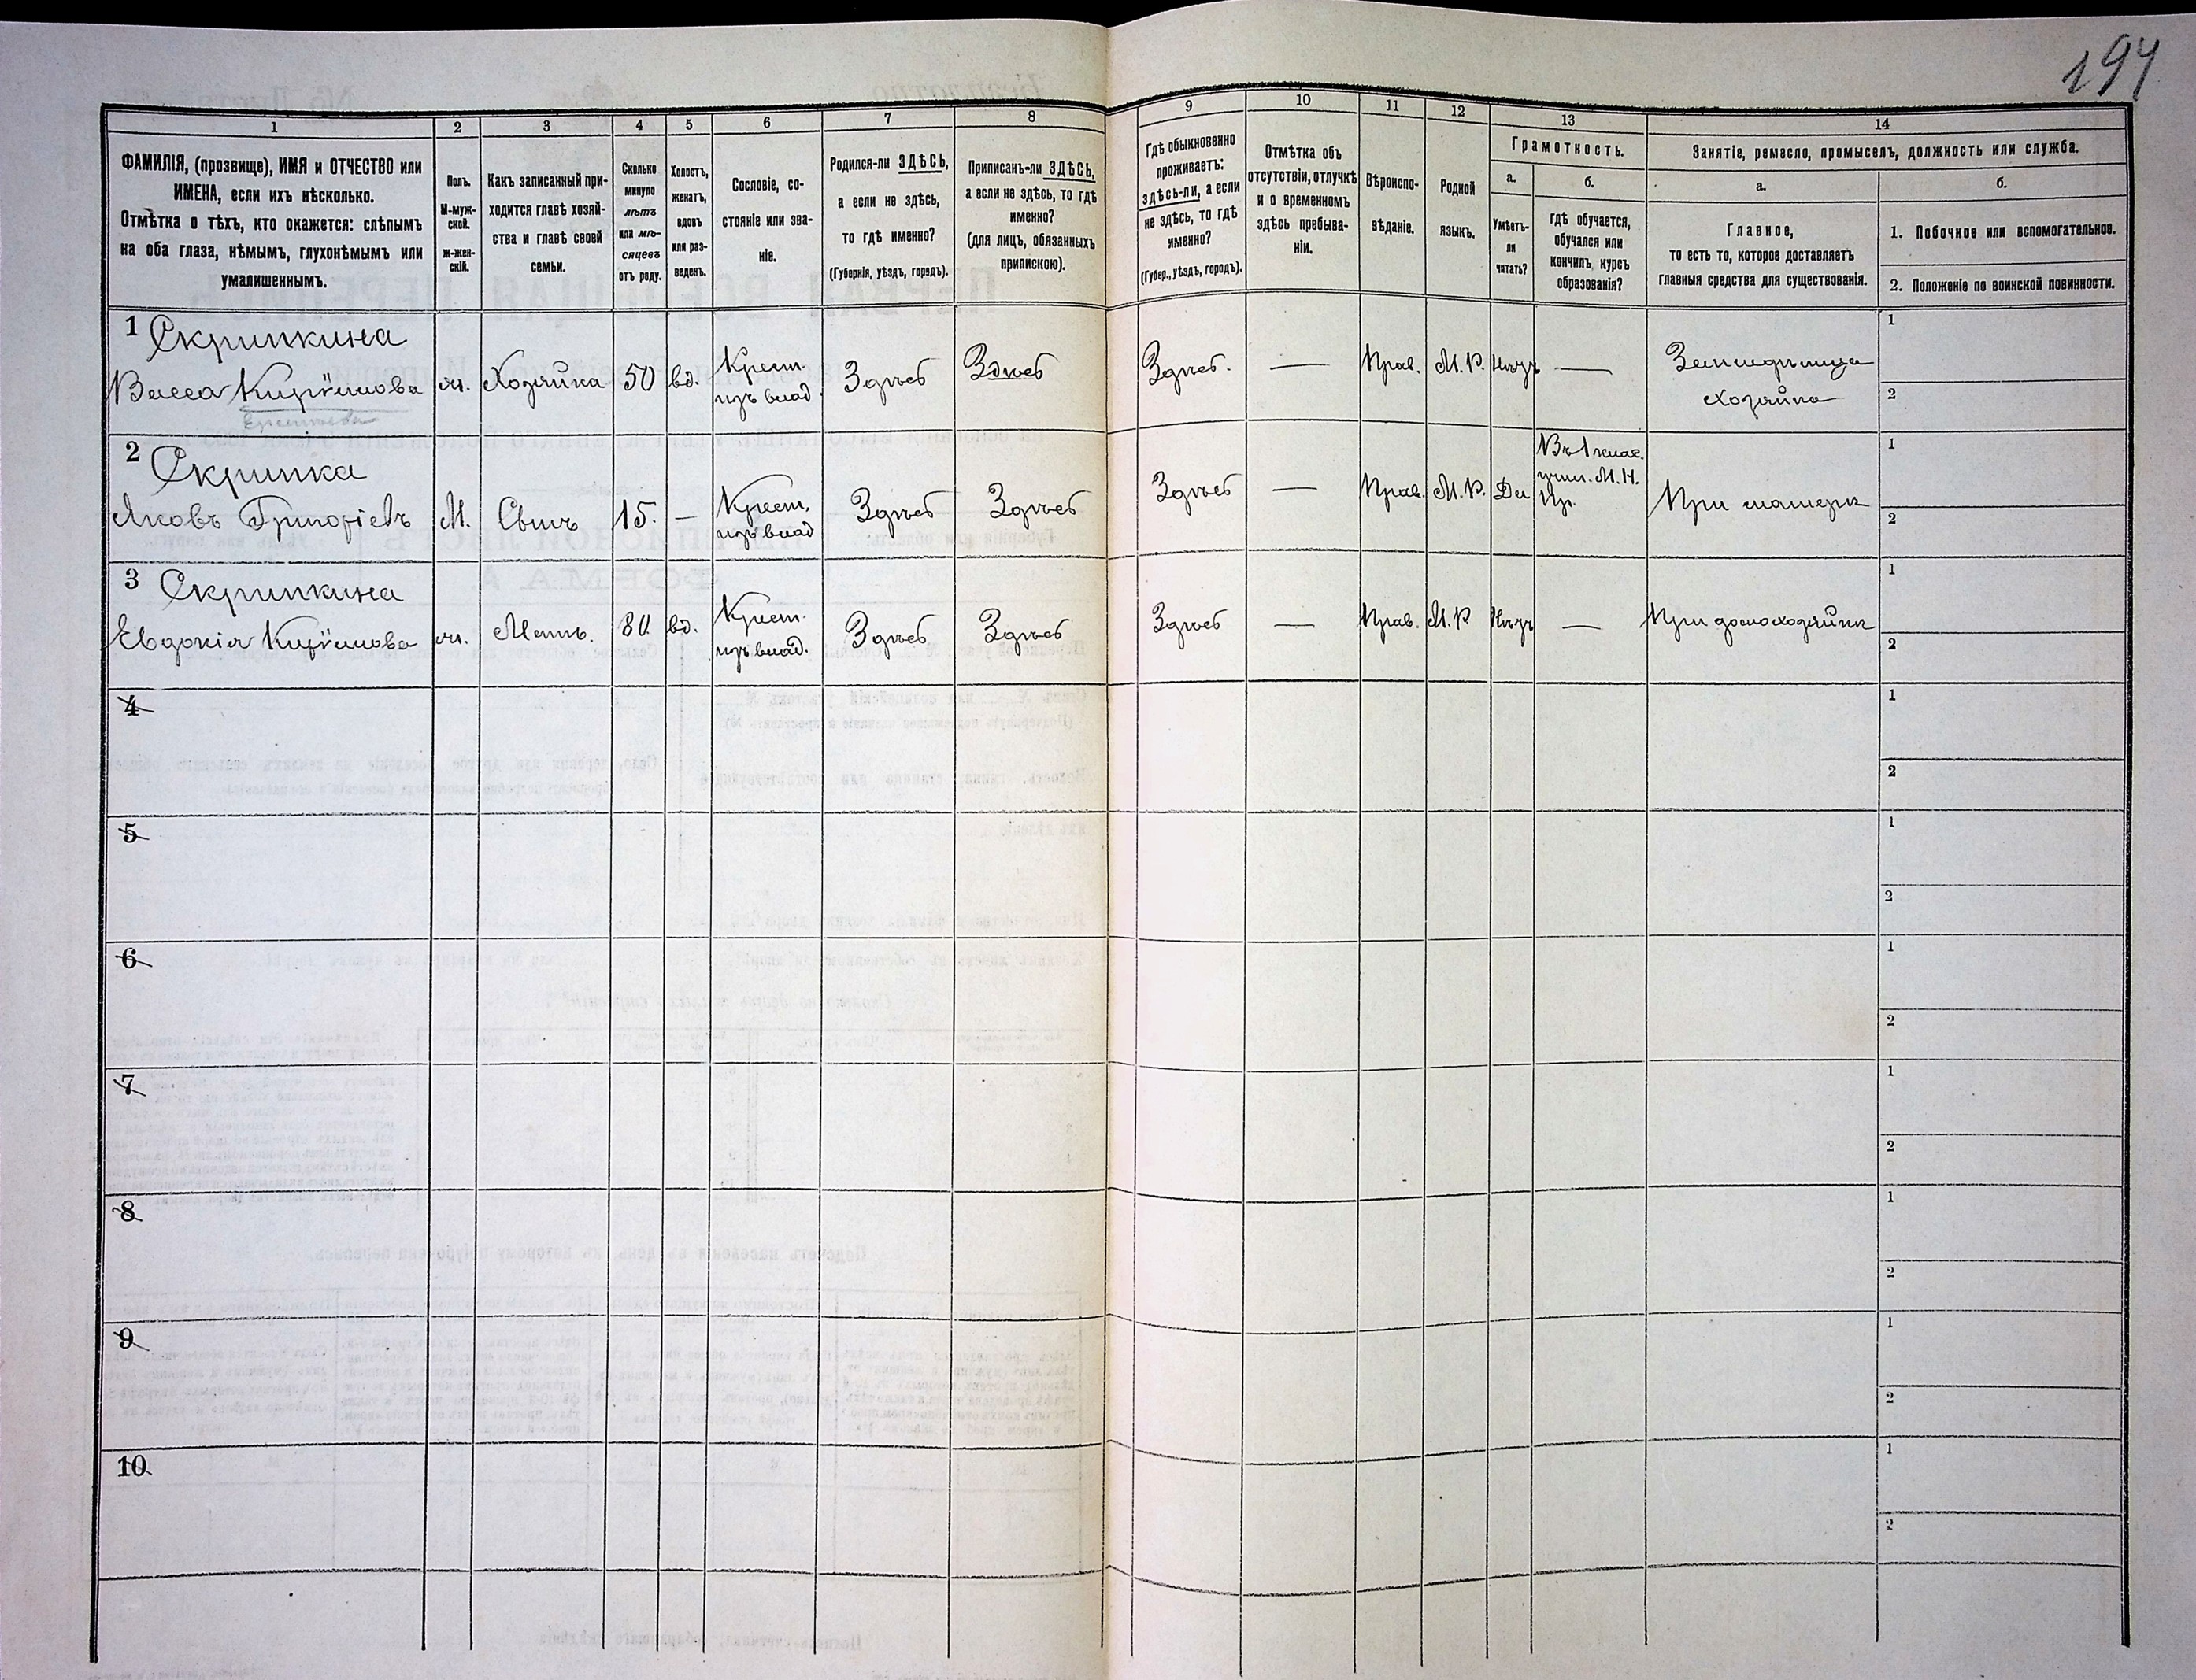 194
1
2
3
4
5
6
7
8
9
10
11
12
13
14
ФАМИЛІЯ, (прозвище), ИМЯ и ОТЧЕСТВО или
ИМЕНА, если ихъ нѣсколько.
Отмѣтка о тѣхъ, кто окажется: слѣпымъ
на оба глаза, нѣмымъ, глухонѣмымъ или
умалишеннымъ.
Полъ.
М-муж-
ской.
ж-жен-
скій.
Какъ записанный при-
ходится главѣ хозяй-
ства и главѣ своей
семьи.
Сколько
минуло
лѣтъ
или мѣ-
сяцевъ
отъ роду.
Холостъ,
женатъ,
вдовъ
или раз-
веденъ.
Сословіе, со-
стояніе или зва-
ніе.
Родился-ли ЗДѢСЬ,
а если не здѣсь,
то гдѣ именно?
(Губернія, уѣздъ, городъ).
Приписанъ-ли ЗДѢСЬ,
а если не здѣсь, то гдѣ
именно?
(для лицъ, обязанныхъ
припискою).
Гдѣ обыкновенно
проживаетъ:
здѣсь-ли, а если
не здѣсь, то гдѣ
именно?
(Губер., уѣздъ, городъ).
Отмѣтка объ
отсутствіи, отлучкѣ
и о временномъ
здѣсь пребыва-
ніи.
Вѣроиспо-
вѣданіе.
Родной
языкъ.
Грамотность.
а.
Умѣетъ-
ли
читать?
б.
гдѣ обучается,
обучался или
кончилъ курсъ
образованія?
Занятіе, ремесло, промыселъ, должность или служба.
а.
Главное,
то есть то, которое доставляетъ
главныя средства для существованія.
б.
1. Побочное или вспомогательное.
2. Положеніе по воинской повинности.
1 Скрипкина
Васса Кирїмова
ж. Хозяйка 50 вд.
Крест.
изъ влад.
Здѣсь Здѣсь Здѣсь. — Прав. М.Р. Нѣтъ —
Земледѣлица
хозяйка
1
2
2 Скрипка
Яковъ Григорїевъ
М. Сынъ 15. —
Крест.
изъ влад
Здѣсь Здѣсь Здѣсь — Прав. М.Р. Да
Въ 1 клас.
учил. М. Н.
Пр.
При матери
1
2
3 Скрипкина
Евдокія Кирїмова
ж. Мать. 80 вд.
Крест.
изъ влад.
Здѣсь Здѣсь Здѣсь — Прав. М.Р Нѣтъ —
При домохозяйкѣ
1
2
4
1
2
5
1
2
6
1
2
7
1
2
8
1
2
9
1
2
10
1
2